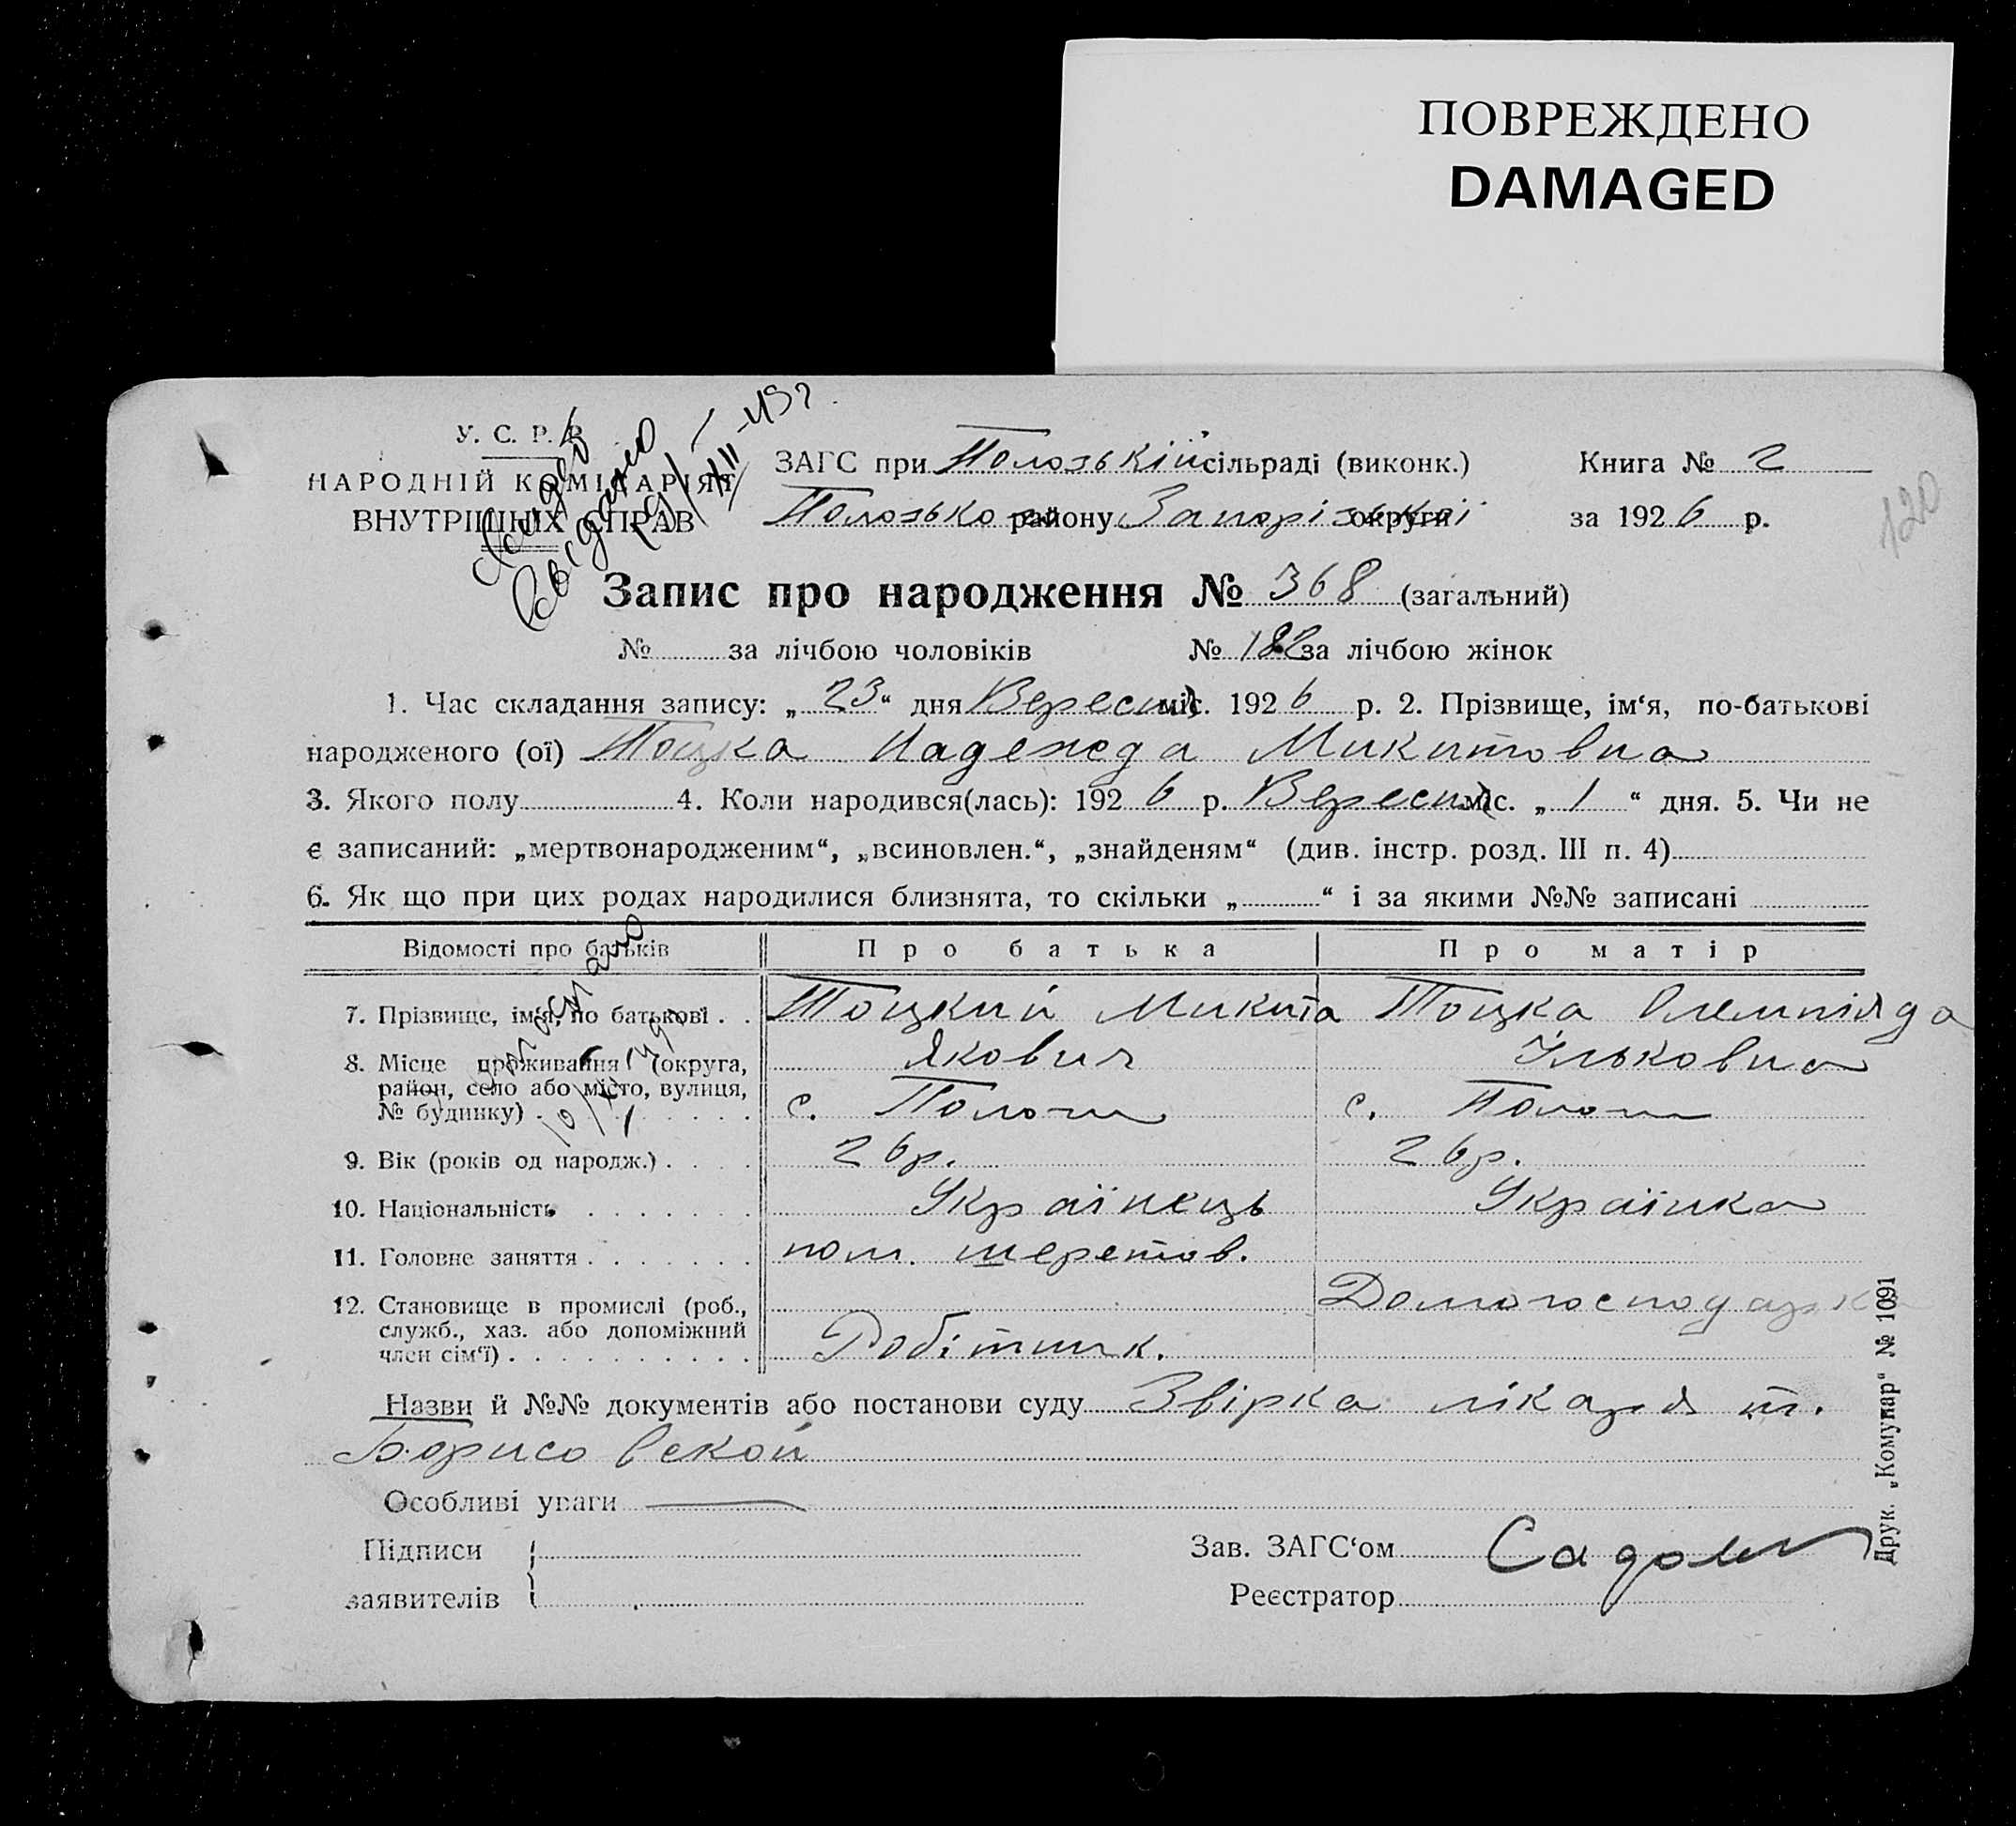 ПОВРЕЖДЕНО
DAMAGED
У. С. Р. Р.
НАРОДНІЙ КОМІСАРІЯТ
ВНУТРІШНІХ СПРАВ
ЗАГС при Полозькій сільраді (виконк.)
Книга № 2
Полозького району Запорізької округи
за 1926 р.
120
Запис про народження № 368 (загальний)
№ за лічбою чоловіків № 182 за лічбою жінок
1. Час складання запису: „23“ дня Вересня міс. 1926 р. 2. Прізвище, ім‘я, по-батькові
народженого (ої) Тоцка Надежда Микитовна
3. Якого полу 4. Коли народився(лась): 1926 р. Вересня міс. „1“ дня. 5. Чи не
є записаний: „мертвонародженим“, „всиновлен.“, „знайденям“ (див. інстр. розд. III п. 4)
6. Як що при цих родах народилися близнята, то скільки „ “ і за якими №№ записані
Відомості про батьків Про батька Про матір
7. Прізвище, ім‘я, по батькові . . Тоцкий Микита Тоцка
Якович Ільковна
8. Місце проживання (округа,
район, село або місто, вулиця,
№ будинку) . с. Пологи с. Пологи
9. Вік (років од народж.) . . . . 26 р. 26 р.
10. Національність . . . . . . . Українець Українка
11. Головне заняття . . . . . . . пом. шеретов.
12. Становище в промислі (роб.,
служб., хаз. або допоміжний
член сім‘ї) . . . . . . . . . . Робітник. Домогосподарка
Назви й №№ документів або постанови суду Звірка лікаря т.
Борисовской
Особливі уваги
Підписи
заявителів
Зав. ЗАГС‘ом
Реєстратор
Друк. „Комунар“ № 1091